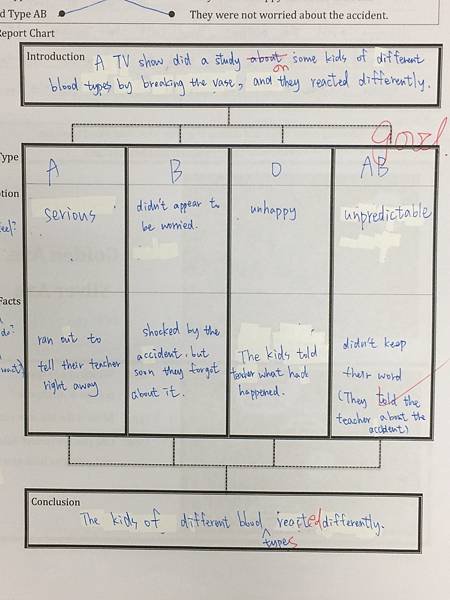 d Type AB
They were not worried about the accident.
Report Chart
Introduction A TV show did a study about on some kids of different
blood types by breaking the vase, and they reacted differently.
good.
Type
A
B
O
AB
otion
eel?
serious
didn't appear to
be worried.
unhappy
unpredictable
Facts
do?
want?
ran out to
tell their teacher
right away
shocked by the
accident, but
soon they forgot
about it.
The kids told
teacher what had
happened.
didn't keep
their word
(They told the
teacher about the
accident)
Conclusion
The kids of different blood reacted differently.
types